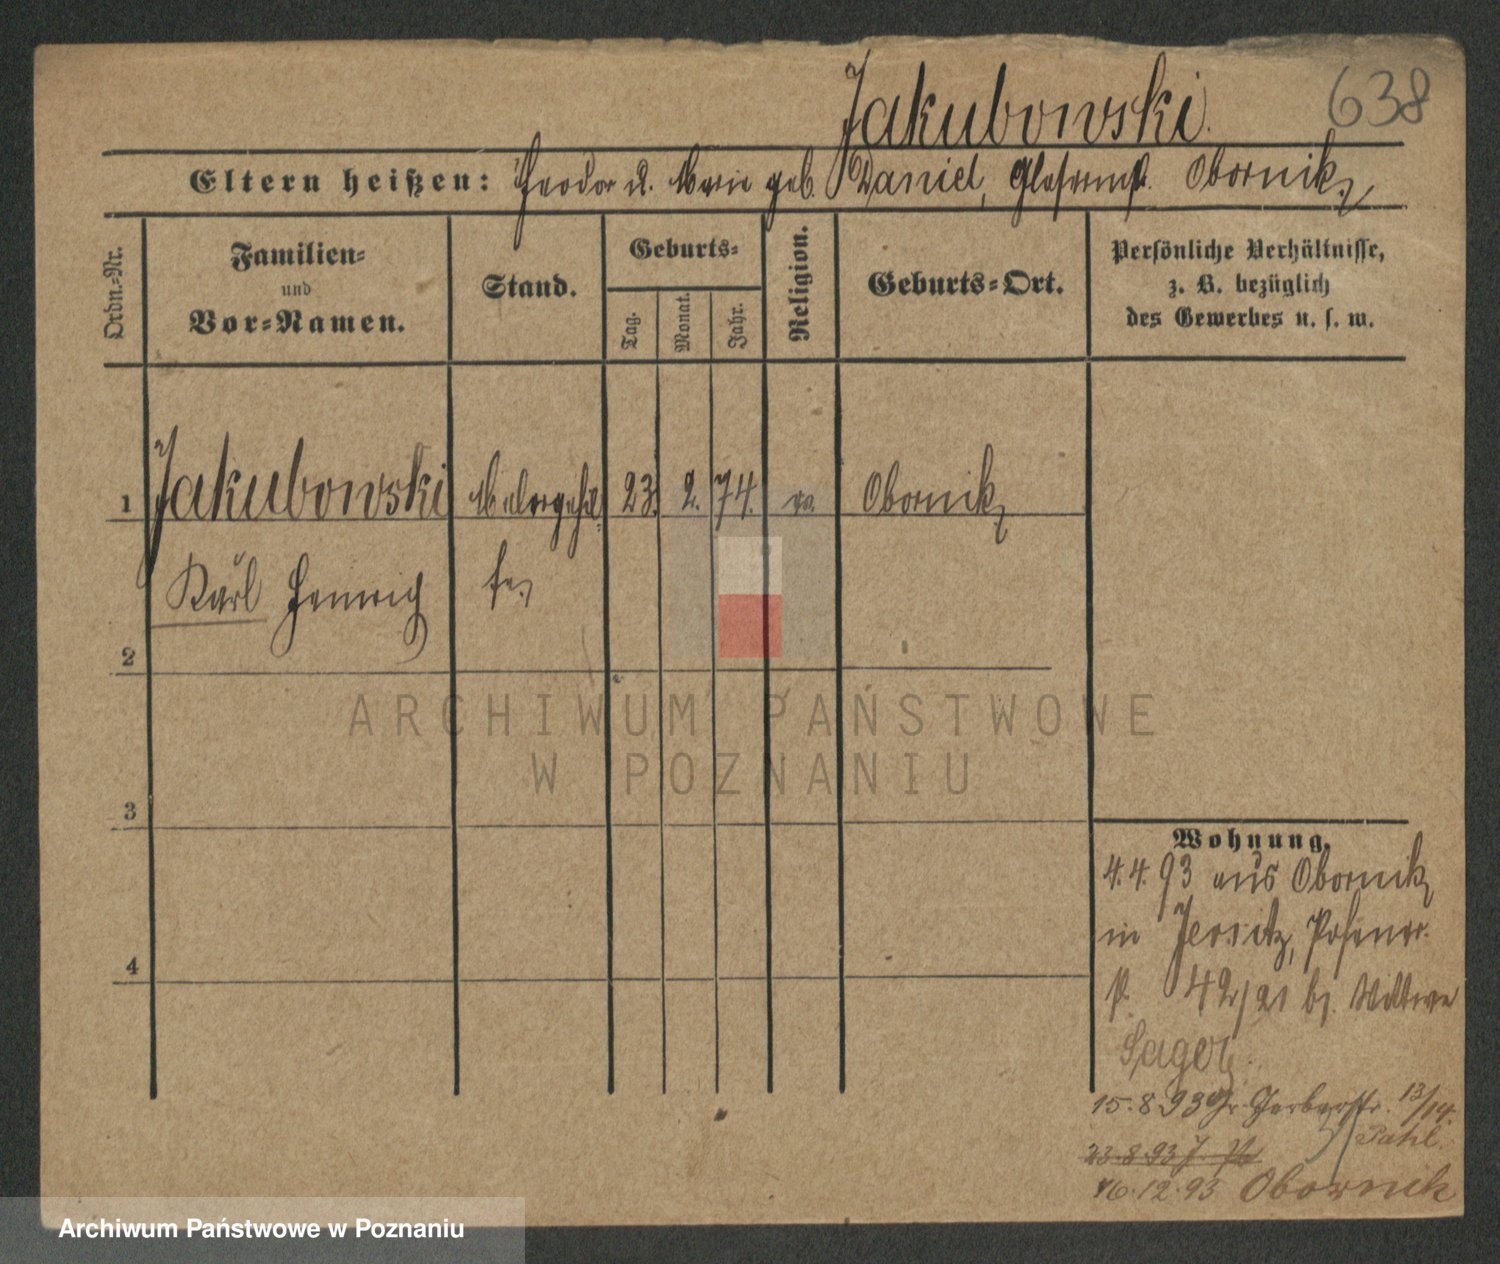 Jakubowski. 638
Eltern heißen: Theodor u. Marie geb. Daniel, Glaserm. Obornik
Ordn.-Nr.
Familien-
und
Vor-Namen.
Stand.
Geburts-
Tag.
Monat.
Jahr.
Religion.
Geburts-Ort.
Persönliche Verhältnisse,
z. B. bezüglich
des Gewerbes u. s. w.
1 Jakubowski Malergehül- 23. 2. 74. ev. Obornik
Karl Heinrich fe
2
3
4
Wohnung.
4.4.93 aus Obornik
in Jersitz, Posener
42/21 bei Wittwe
Sager
15.8.93 Gr. Gerberstr. 13/14.
Pahl
23.8.93 J.
16.12.93 Obornik
ARCHIWUM PAŃSTWOWE
W POZNANIU
Archiwum Państwowe w Poznaniu